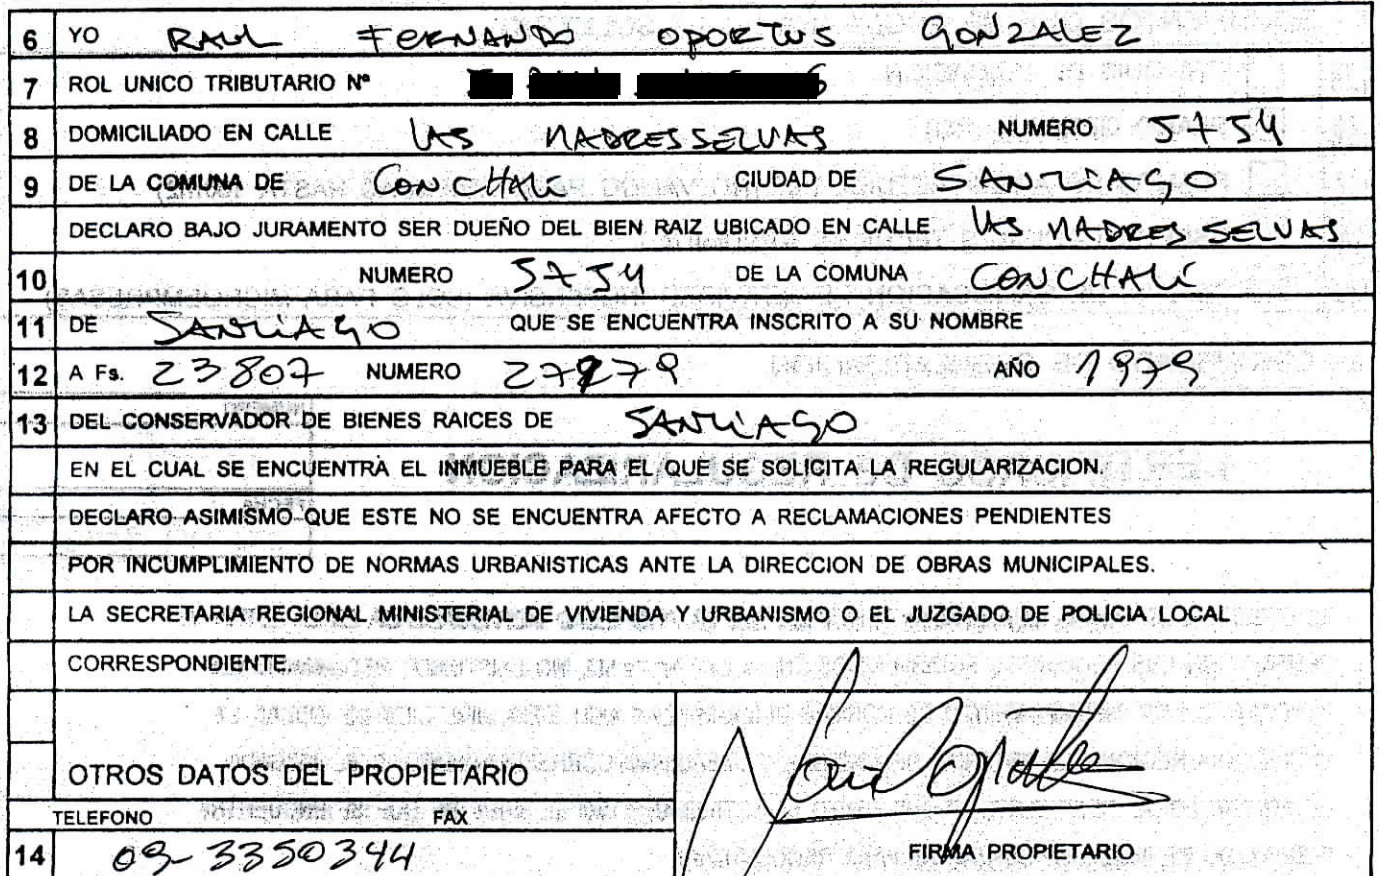 6 YO RAUL FERNANDO OPORTUS GONZALEZ
7 ROL UNICO TRIBUTARIO Nº
8 DOMICILIADO EN CALLE LAS MADRESSELVAS NUMERO 5754
9 DE LA COMUNA DE CONCHALÍ CIUDAD DE SANTIAGO
DECLARO BAJO JURAMENTO SER DUEÑO DEL BIEN RAIZ UBICADO EN CALLE LAS MADRES SELVAS
10 NUMERO 5754 DE LA COMUNA CONCHALÍ
11 DE SANTIAGO QUE SE ENCUENTRA INSCRITO A SU NOMBRE
12 A Fs. 23807 NUMERO AÑO 1979
13 DEL CONSERVADOR DE BIENES RAICES DE SANTIAGO
EN EL CUAL SE ENCUENTRA EL INMUEBLE PARA EL QUE SE SOLICITA LA REGULARIZACION.
DECLARO ASIMISMO QUE ESTE NO SE ENCUENTRA AFECTO A RECLAMACIONES PENDIENTES
POR INCUMPLIMIENTO DE NORMAS URBANISTICAS ANTE LA DIRECCION DE OBRAS MUNICIPALES.
LA SECRETARIA REGIONAL MINISTERIAL DE VIVIENDA Y URBANISMO O EL JUZGADO DE POLICIA LOCAL
CORRESPONDIENTE.
OTROS DATOS DEL PROPIETARIO
TELEFONO FAX
14 09-3350344
FIRMA PROPIETARIO